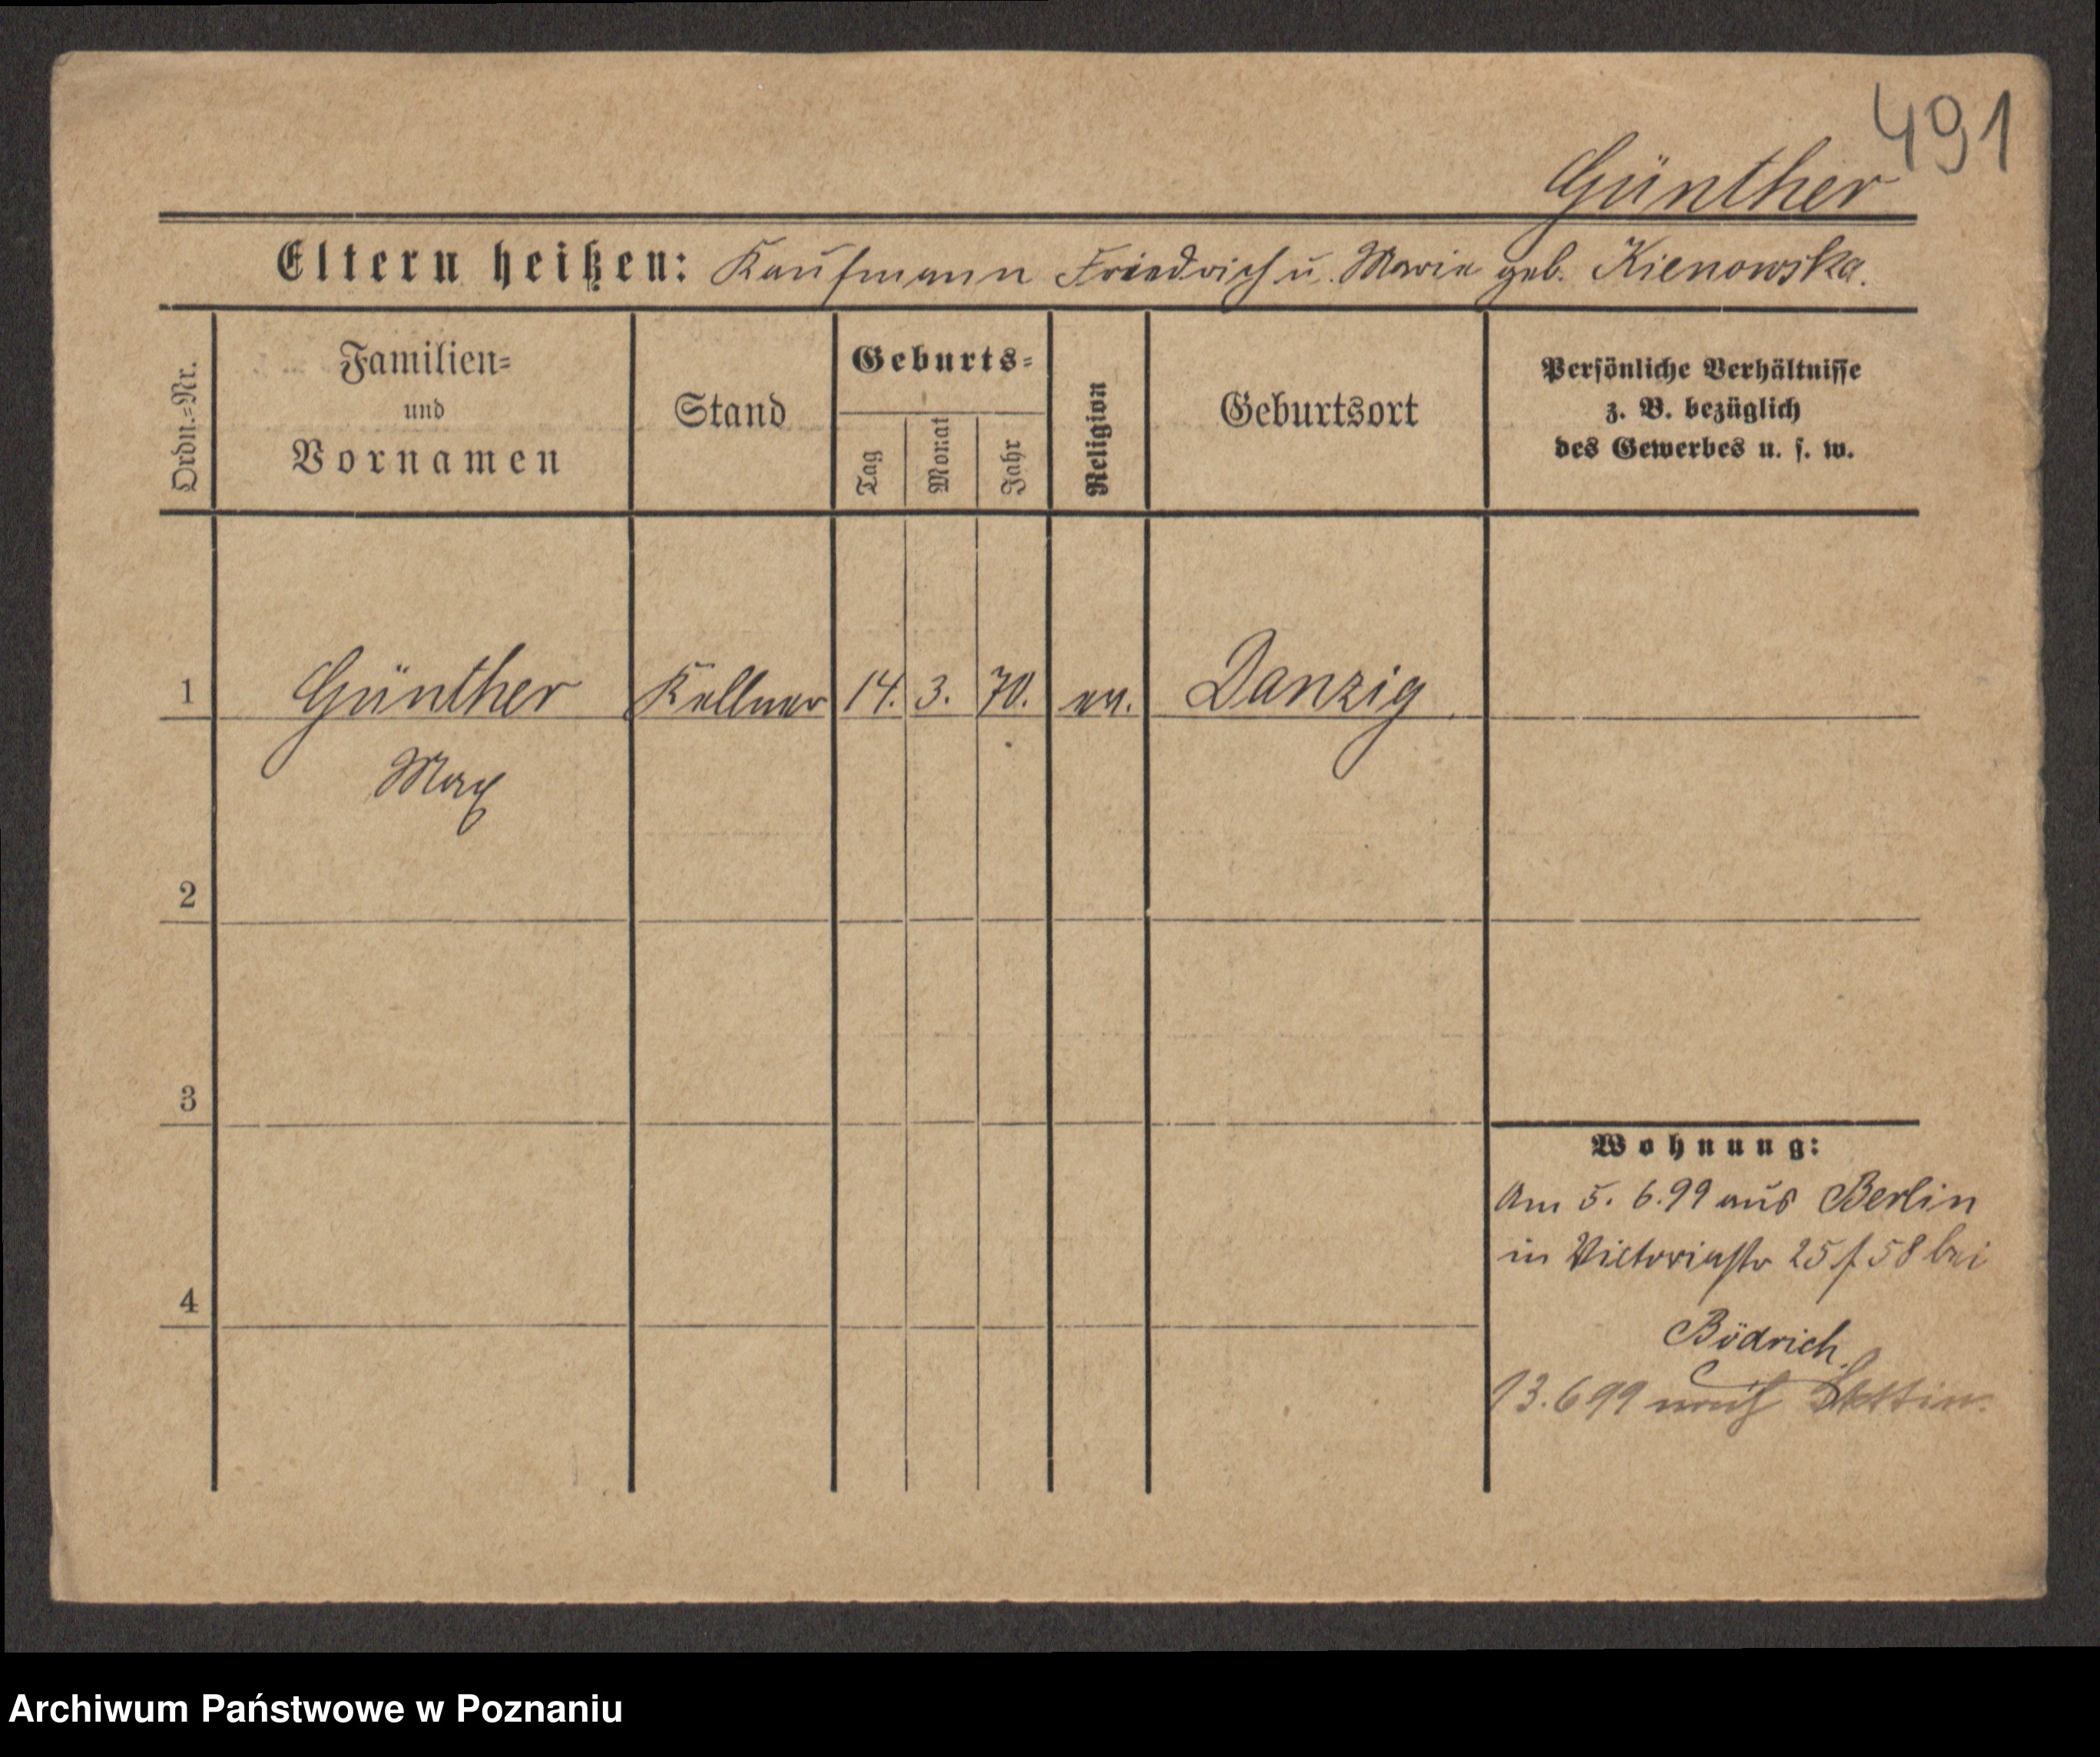 491
Günther
Eltern heißen: Kaufmann Friedrich u. Marie geb. Kienowska.
Ordn.=Nr.
Familien=
und
Vornamen
Stand
Geburts=
Tag
Monat
Jahr
Religion
Geburtsort
Persönliche Verhältnisse
z. B. bezüglich
des Gewerbes u. s. w.
1 Günther Kellner 14. 3. 70. ev. Danzig
Max
2
3
4
Wohnung:
Am 5. 6. 99 aus Berlin
in Victoriastr 25 f 58 bei
Bödrich.
13. 6 99 nach Stettin.
Archiwum Państwowe w Poznaniu